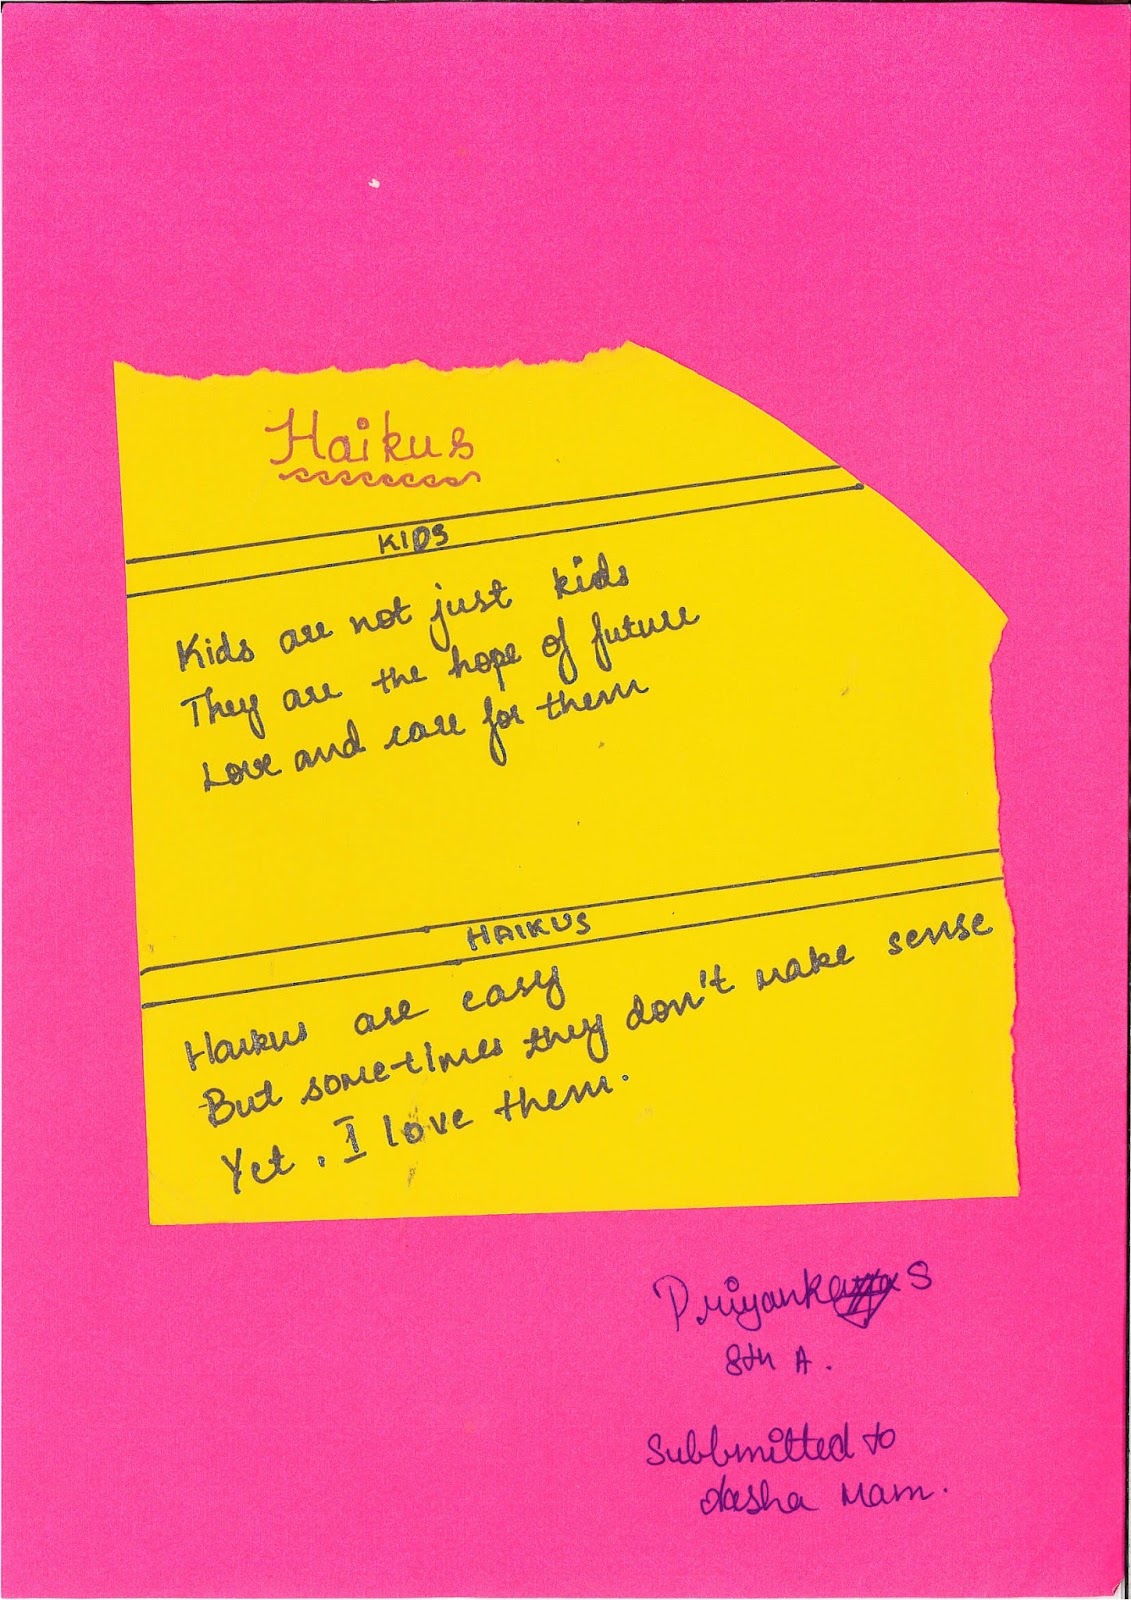 Haikus
KIDS
Kids are not just kids
They are the hope of future
Love and care for them
HAIKUS
Haikus are easy
But sometimes they don't make sense
Yet. I love them.
S
8th A.
Subbmitted to
Mam.